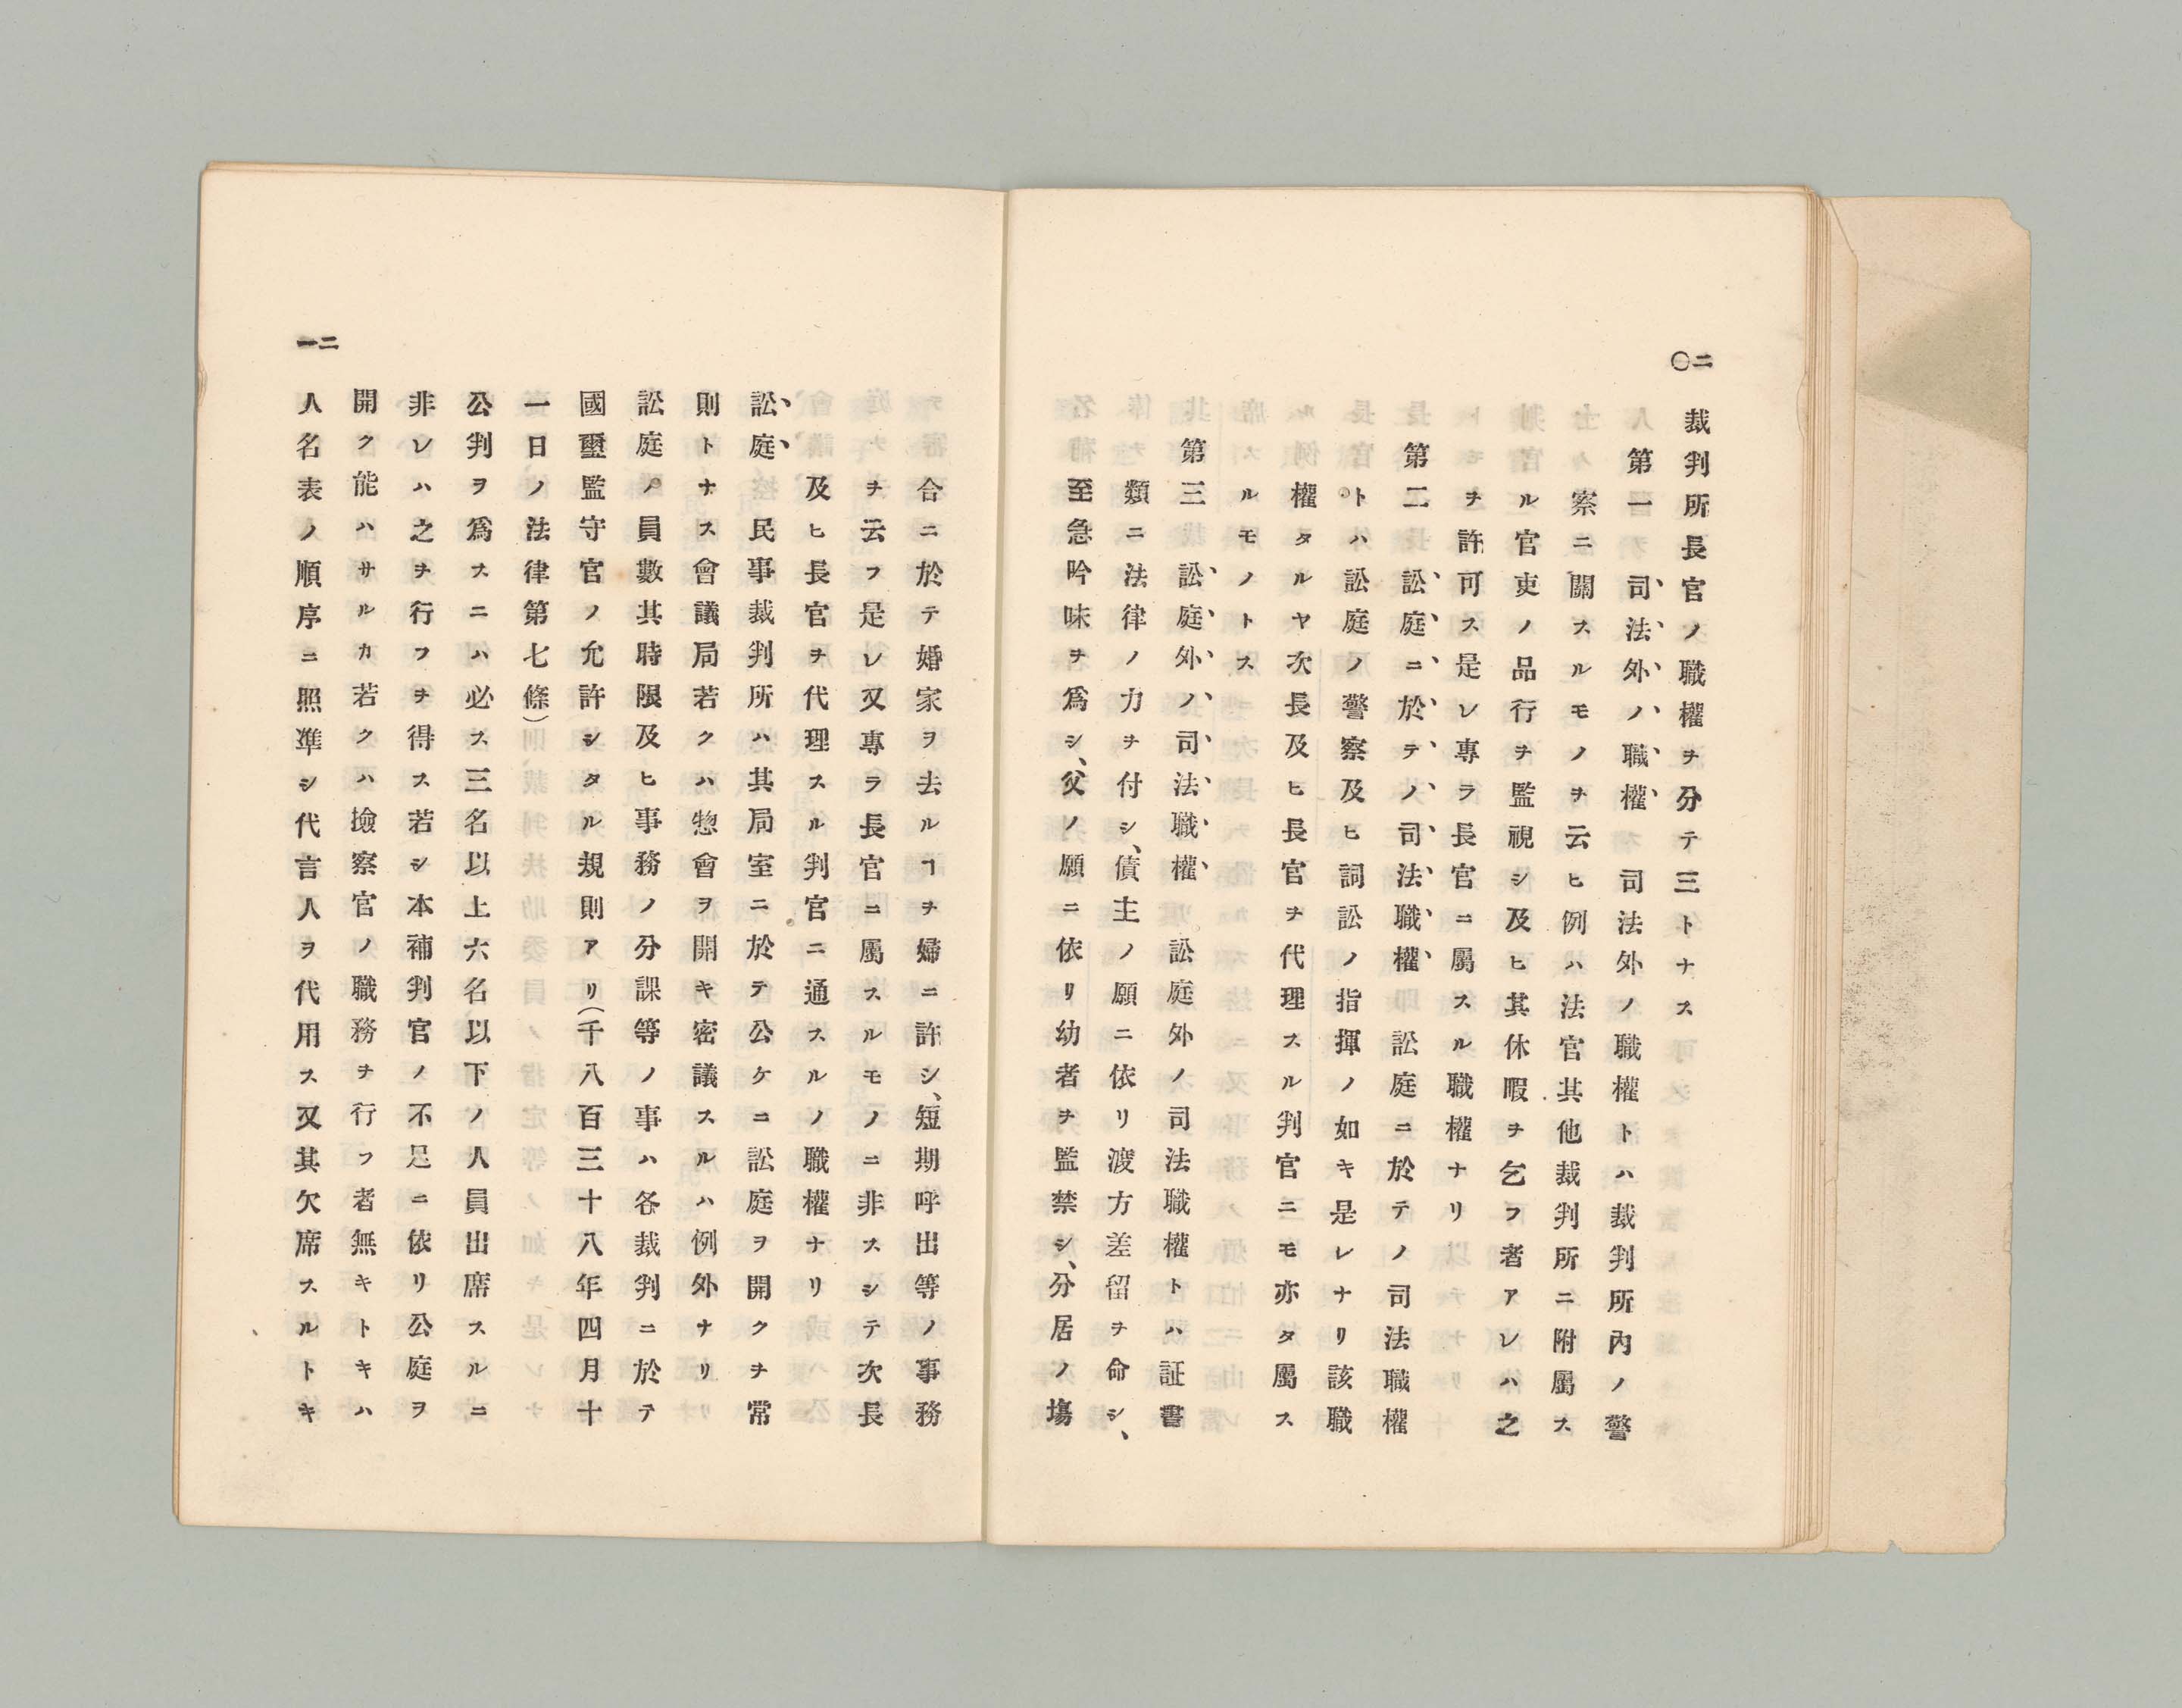 二〇
裁判所長官ノ職權ヲ分テ三トナス
第一 司法外ノ職權 司法外ノ職權トハ裁判所內ノ警
察ニ關スルモノヲ云ヒ例ハ法官其他裁判所ニ附屬ス
ル官吏ノ品行ヲ監視シ及ヒ其休暇ヲ乞フ者アレハ之
ヲ許可ス是レ專ラ長官ニ屬スル職權ナリ
第二 訟庭ニ於テノ司法職權 訟庭ニ於テノ司法職權
トハ訟庭ノ警察及ヒ詞訟ノ指揮ノ如キ是レナリ該職
權タルヤ次長及ヒ長官ヲ代理スル判官ニモ亦タ屬ス
ルモノトス
第三 訟庭外ノ司法職權 訟庭外ノ司法職權トハ証書
類ニ法律ノ力ヲ付シ、債主ノ願ニ依リ渡方差留ヲ命シ、
至急吟味ヲ爲シ、父ノ願ニ依リ幼者ヲ監禁シ、分居ノ塲
合ニ於テ婚家ヲ去ルヿヲ婦ニ許シ、短期呼出等ノ事務
ヲ云フ是レ又專ラ長官ニ屬スルモノニ非スシテ次長
及ヒ長官ヲ代理スル判官ニ通スルノ職權ナリ
訟庭 民事裁判所ハ其局室ニ於テ公ケニ訟庭ヲ開クヲ常
則トナス會議局若クハ惣會ヲ開キ密議スルハ例外ナリ
訟庭ノ員數其時限及ヒ事務ノ分課等ノ事ハ各裁判ニ於テ
國璽監守官ノ允許シタル規則アリ(千八百三十八年四月十
一日ノ法律第七條)
公判ヲ爲スニハ必ス三名以上六名以下ノ人員出席スルニ
非レハ之ヲ行フヲ得ス若シ本補判官ノ不足ニ依リ公庭ヲ
開ク能ハサルカ若クハ撿察官ノ職務ヲ行フ者無キトキハ
人名表ノ順序ニ照準シ代言人ヲ代用ス又其欠席スルトキ
二一